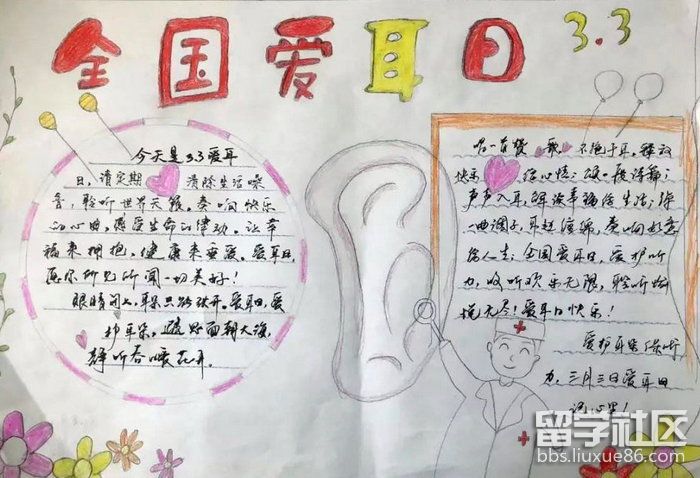 全国爱耳日 3.3
今天是3.3爱耳
日,请定期 清除生活噪
音,聆听世界天籁。奏响快乐
的心曲,感受生命的律动。让幸
福来拥抱,健康来垂爱。爱耳日,
愿你所见所闻一切美好!
眼睛闭上,耳朵只始张开。爱耳日,爱
护耳朵,面朝大海,
静听春暖花开。
唱一首赞 歌 不绝于耳,释放
快乐 好心情;读一段诗篇
声声入耳,解读幸福给生活;张
一曲调子,耳廷演绎,奏响好意
给人生;全国爱耳日,爱护听
力,收听欢乐无限,聆听
无尽!爱耳日快乐!
爱护耳朵保听
力,三月三日爱耳日
记心里!
留学社区
bbs.liuxue86.com